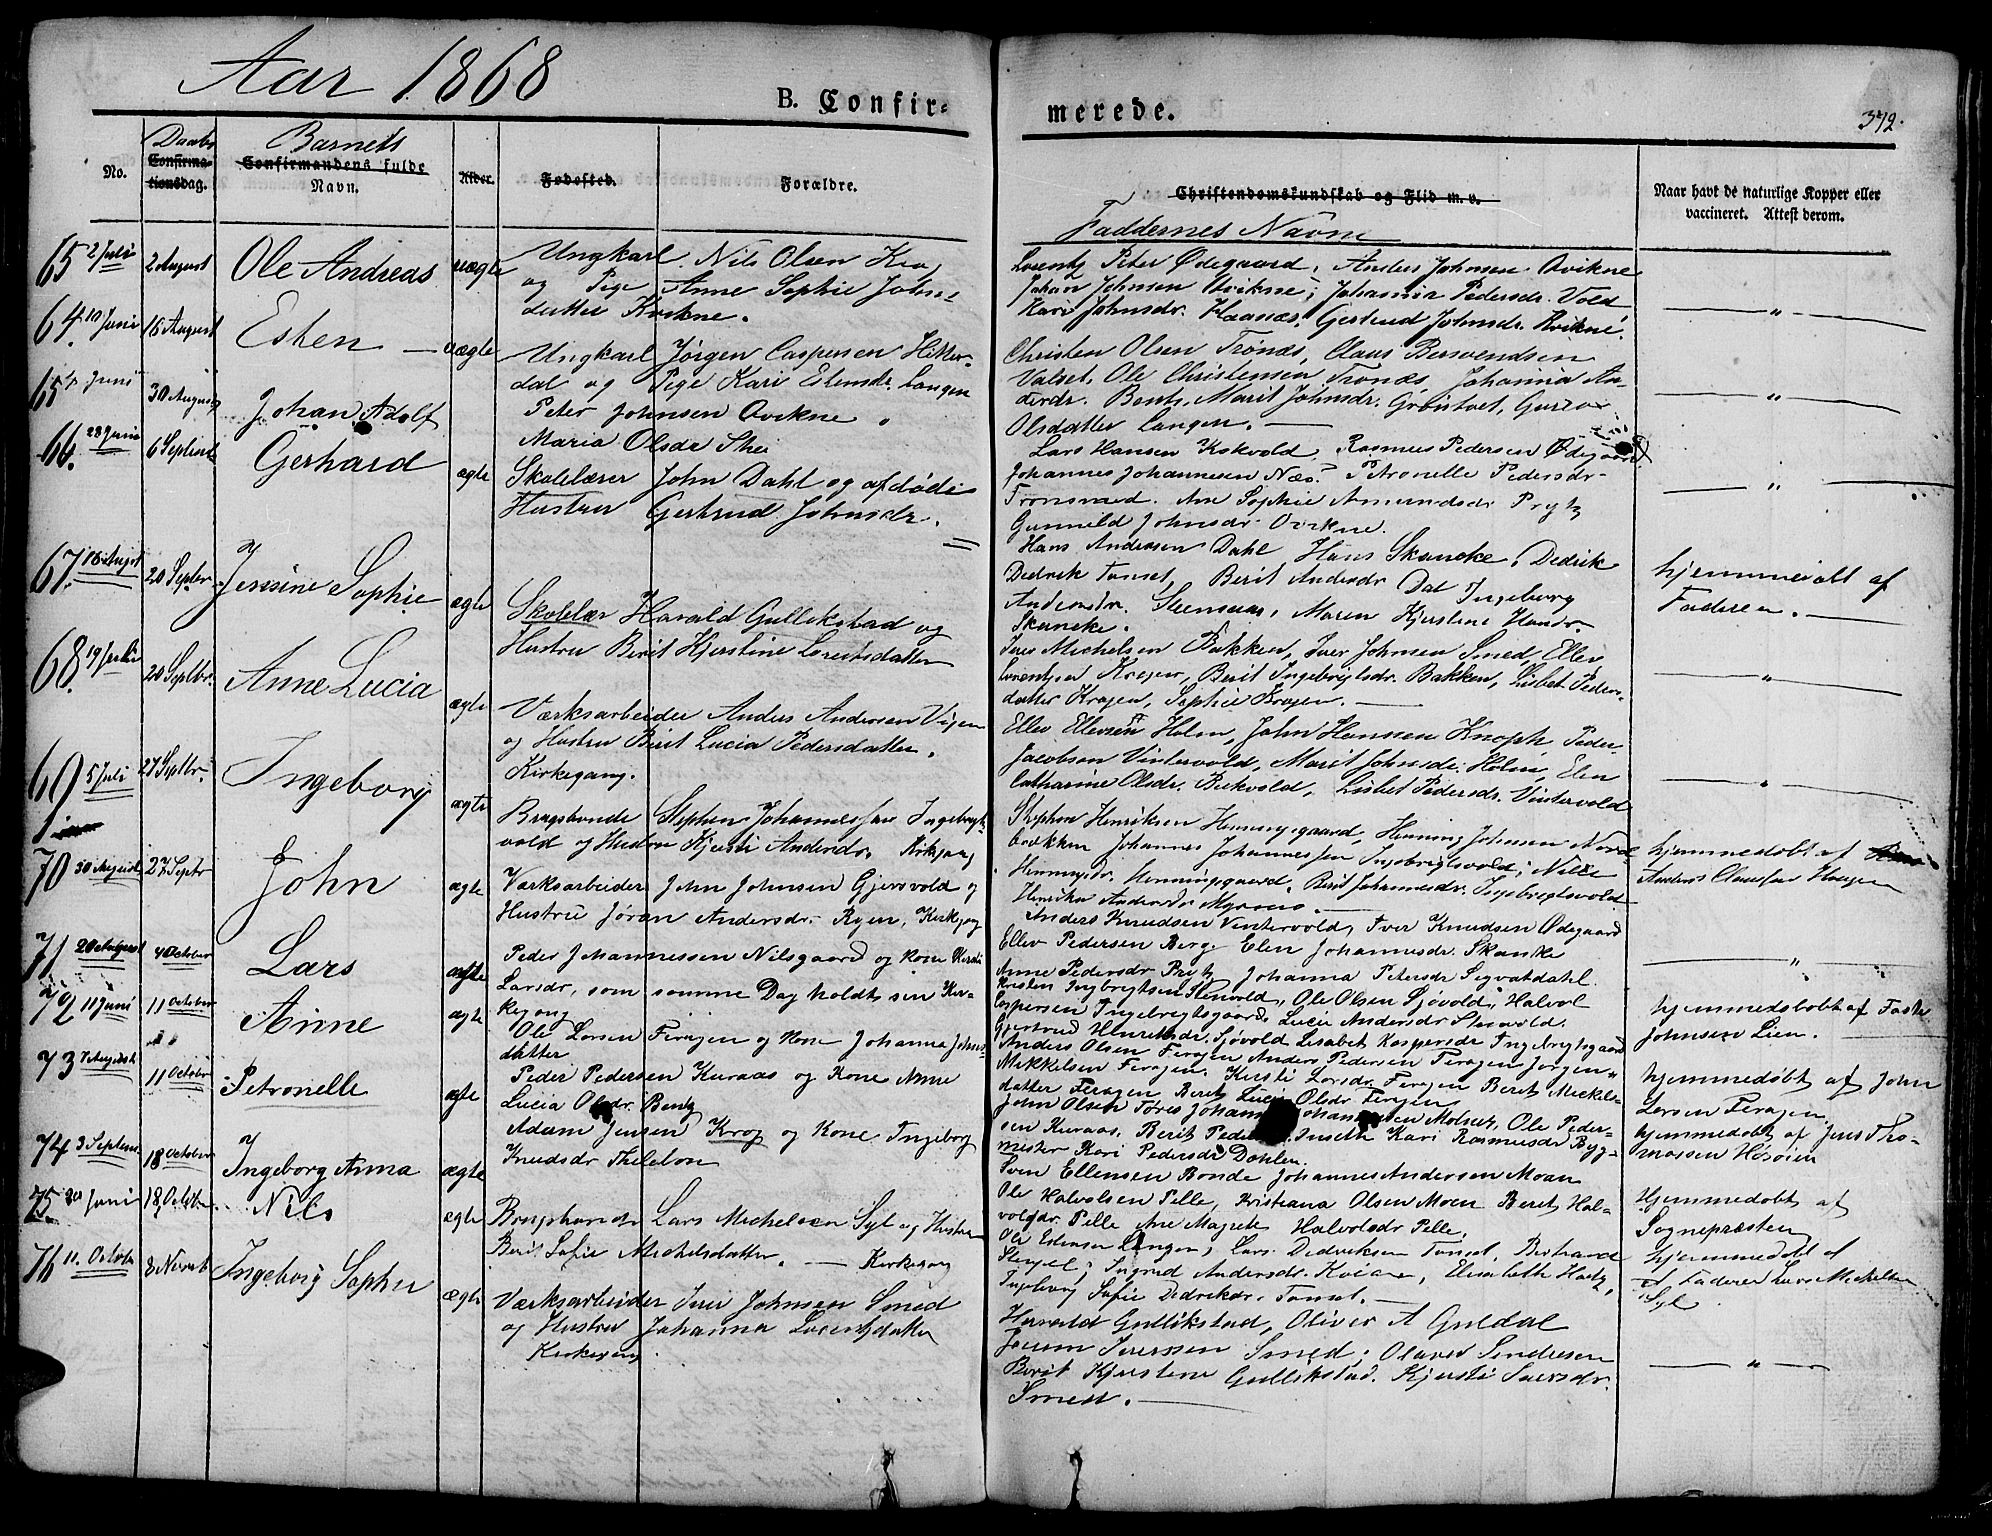 Aar 1868
B. Confir=
merede.
372.
No.
Daabs
Confirma-
tionsdag.
Barnets
Confirmandens fulde
Navn.
Alder.
Fødested.
Forældre.
Christendomskundskab og Flid m. v.
Faddernes Navne
Naar havt de naturlige Kopper eller
vaccineret. Attest derom.
65 2 Juli 2 August Ole Andreas uægte
Ungkarl Nils Olsen
og Pige Anne Sophie Johns-
datter Kvikne.
Lorentz Peter Ødegaard, Anders Johnsen Ovikne
Johan Johnsen Ovikne, Johanna Pedersdr. Vold
Kari Johnsdr. Haanæs, Gertrud Johnsdr. Kvikne.
64. 10 Juni 16 August Esten uægte
Ungkarl Jørgen Caspersen Hitter-
dal og Pige Kari Estensdr. Langen
Christen Olsen Trønæs, Claus Bersvendsen
Valset, Ole Christensen Trønæs, Johanna An-
dersdr. Bents, Marit Johnsdr.
Olsdatter Langen.
65 4 Juni 30 August Johan Adolf
Peter Johnsen Ovikne
Maria Olsdr
66. 28 Juni 6 Septem Gerhard ægte
Skolelærer John Dahl og afdøde
Hustru Gertrud Johnsdr.
Lars Hansen Kokvold, Rasmus Pedersen Ødegaard
Johannes Johannesen Næs, Petronelle Pedersdr-
Tronsmed. Ane Sophie Amundsdr Prytz
Gunnild Johnsdr Ovikne.
67. 16 August 20 Septbr. Jenssine Sophie ægte
Skolelær Harald Gullikstad og
Hustru Berit Kjerstine Lorentsdatter
Hans Andersen Dahl, Hans Skancke, Dedrik
Dedrik Tamset, Berit Andersdr Dal Ingeborg
Andersdr. Steenaas, Maren Kjerstine Hansdr.
Skancke.
hjemmedøbt af
Faderen.
68. 19 Juli 20 Septbr. Anne Lucia ægte
Værksarbeider Anders Andersen Vigen
og Hustru Berit Lucia Pedersdatter.
Kirkegang.
Iver Michelsen Bakken, Iver Johnsen Smed, Ellev
Lorentzen Kragen, Berit Ingebrigtsdr. Bakken, Lisbet Peders-
datter Kragen, Sophie Kragen.
69 5 Juli 27 Septbr. Ingeborg ægte
Brugsbonde Stephen Johannessen Ingebrigt-
vold og Hustru Kjersti Andersdr. Kirkegang
Ellev Ellevsen Holm, John Hanssen Knoph, Peder
Jacobsen Vintervold, Marit Johnsdr. Holm, Elen
Catharine Olsdr. Bekvold, Lisbet Pedersdr. Vintervold
70 30 August 27 Septr John ægte
Værksarbeider John Johnsen Gjersvold og
Hustru Jøran Andersdr. Ryen, Kirkegang
Stephen Henriksen Henningsgaard, Henning Johnsen Nord
bækken Johannes Johannessen Ingebrigtsvold, Nille
Henningsdr. Henningsgaard, Berit Johannesdr. Ingebrigtsvold
Henrika Andersdr
hjemmedøbt af
Anders Claussen Haugen
71 20 August 4 October Lars ægte
Peder Johannessen Nilsgaard og kone Kersti
Larsdr, som samme Dag holdt sin Kir-
kegang
Anders Knudsen Vintervold, Iver Knudsen Ødegaard
Ellev Pedersen Berg, Elen Johannesdr. Skanke
Anne Pedersdr Prytz, Johanna Petersdr Sigvatdahl.
72 11 Juni 11 October Anne ægte
Ole Larsen Feragen og Kone Johanna Johns-
datter
Kristen Ingbrigtsen Stenvold, Ole Olsen Sjøvold, Halvol
Caspersen Ingebregtsgaard, Lucie Andersdr Stenvold.
Gjertrud Henriksdr. Sjøvold Lisabet Kaspersdr Ingebrigtsgaard
hjemmedøbt af Faste
Johnsen Lien.
73 7 August 11 October Petronelle ægte
Peder Pedersen Kuraas og Kone Anne
Lucia Olsdr. Bentz
Anders Olsen Feragen Anders Pedersen Feragen Jørgen
Mikkelsen Feragen. Kersti Larsdr. Feragen Berit Mickels-
datter Feragen Berit Lucie Olsdr Feragen
hjemmedøbt af John
Larsen Feragen
74 3 Septem 18 October Ingeborg Anna ægte
Adam Jensen Krog og Kone Ingeborg
Knudsdr
John Olsen Tøres Johan Johannesen Molset, Ole Peder-
sen Kuraas. Berit Peders Tuseth Kari Rasmusdr Byg-
mester Kari Pedersdr Dahlen.
hjemmedøbt af Jens Tho-
massen
75. 30 Juni 18 October Nils ægte
Brugsbonde Lars Michelsen Syl og Hustru
Berit Sofie Michelsdatter. Kirkegang
Sven Ellensen Bonde Johannes Andersen Moan
Ole Halvolsen Pelle, Kristiana Olsen Moen Beret Hal-
volsdr. Pelle Ane Magrete Halvolsdr Pelle.
Hjemmedøbt af
Sognepræsten
76 11. October 8 Novemb Ingeborg Sophie ægte
Værksarbeider Iver Johnsen Smed
og Hustru Johanna Lorentzdatter
Kirkegang.
Ole Estensen Langen, Lars Dedriksen Tamset, Bertrand
Ingrid Andersdr. Elisabeth
Ingeborg Sofie Dedriksdr. Tamset.
hjemmedøbt af
Faderen Lars Michelsen
Syl
Harald Gullikstad, Oliver A Guldal
Joum Iversen Smed, Olaves Sendresen
Berit Kjerstine Gullikstad. Kjersti Iversdr.
Smed.